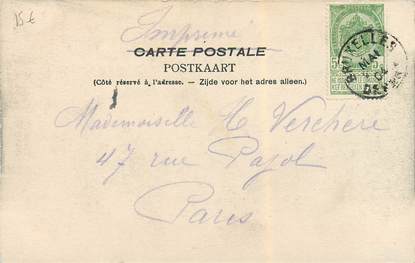 15 €
Imprimé
CARTE POSTALE
POSTKAART
(Côté réservé à l'adresse. – Zijde voor het adres alleen.)
BRUXELLES
Mademoiselle H. Verchère
47 rue Pajol
Paris